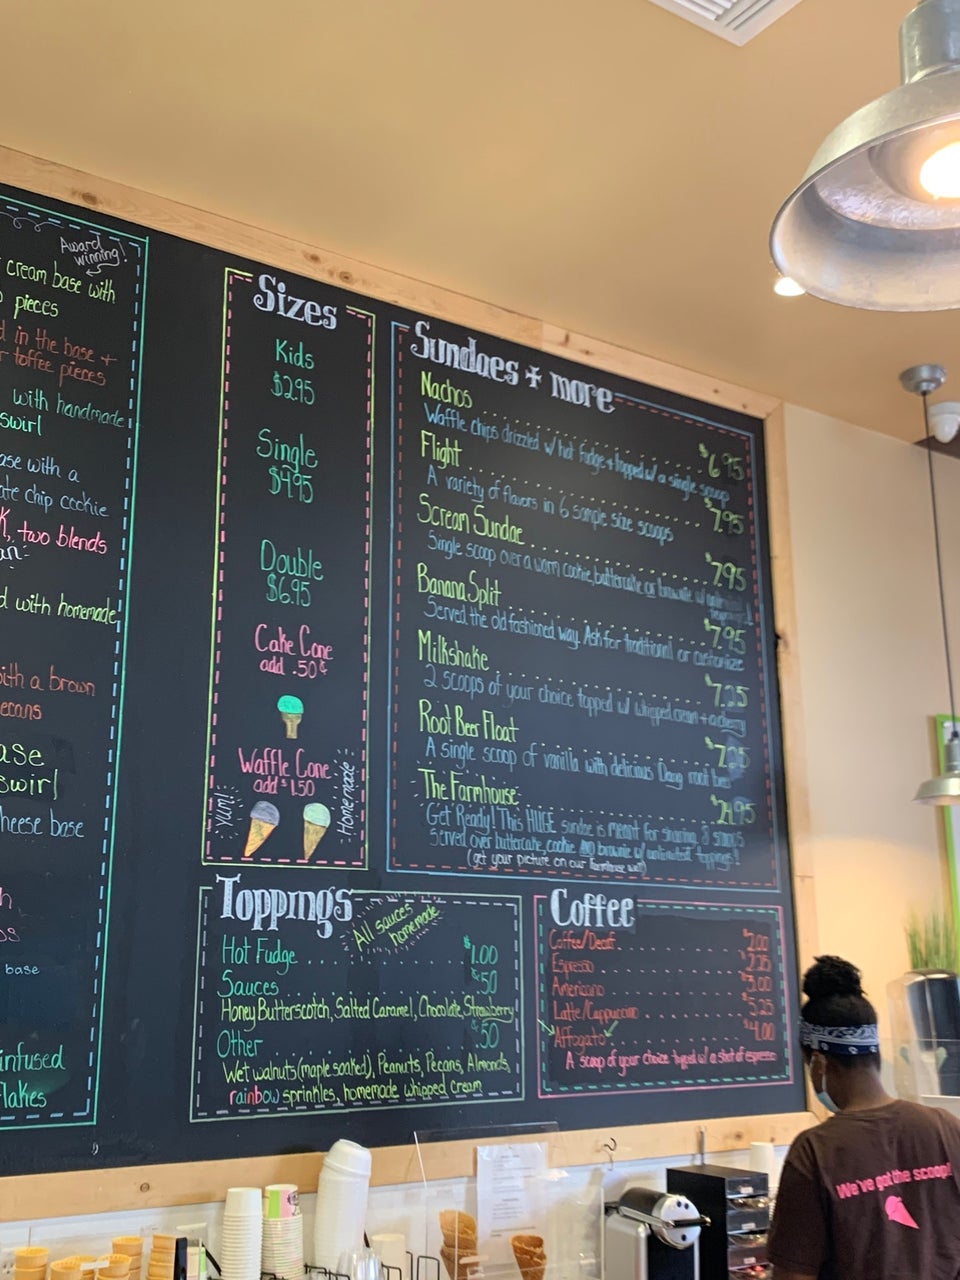 Award
winning!
cream base with
pieces
in the base +
toffee pieces
with handmade
swirl
with a
chip cookie
two blends
with homemade
with a brown
swirl
base
infused
Sizes
Kids
$2.95
Single
$4.95
Double
$6.95
Cake Cone
add .50¢
Waffle Cone
add $1.50
Yum!
Homemade
Sundaes + more
Nachos $6.95
Waffle chips drizzled w/ hot fudge + topped w/ a single scoop
Flight $7.95
A variety of flavors in 6 sample size scoops
Scream Sundae $7.95
Single scoop over a warm cookie, buttercake or brownie w/
Banana Split $7.95
Served the old fashioned way. Ask for traditional or customize
Milkshake $7.25
2 scoops of your choice topped w/ whipped cream + a cherry
Root Beer Float $7.25
A single scoop of vanilla with delicious root beer
The Farmhouse $24.95
Get Ready! This HUGE sundae is meant for sharing, 8 scoops
served over buttercake, cookie AND brownie w/ unlimited toppings!
(get your picture on our Farmhouse wall)
Toppings
All sauces
homemade
Hot Fudge $1.00
Sauces $.50
Honey Butterscotch, Salted Caramel, Chocolate, Strawberry
Other $.50
Wet walnuts (maple soaked), Peanuts, Pecans, Almonds,
rainbow sprinkles, homemade whipped cream
Coffee
Coffee/Decaf $2.00
Espresso $2.25
Americano $3.00
Latte/Cappuccino $3.25
Affogato $4.00
A scoop of your choice topped w/ a shot of espresso
We've got the scoop!